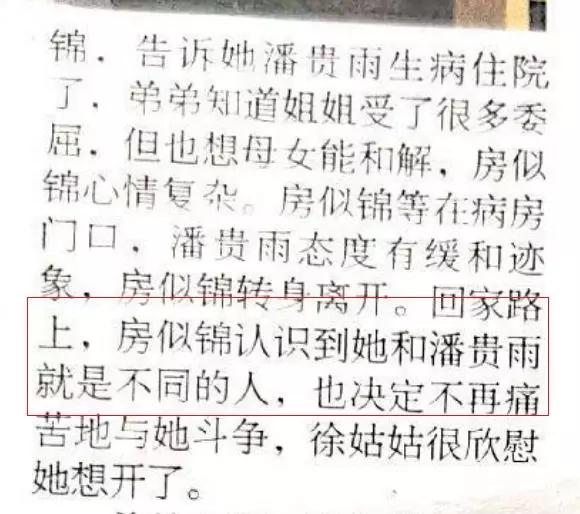 锦，告诉她潘贵雨生病住院
了，弟弟知道姐姐受了很多委
屈，但也想母女能和解，房似
锦心情复杂。房似锦等在病房
门口，潘贵雨态度有缓和迹
象，房似锦转身离开。回家路
上，房似锦认识到她和潘贵雨
就是不同的人，也决定不再痛
苦地与她斗争，徐姑姑很欣慰
她想开了。